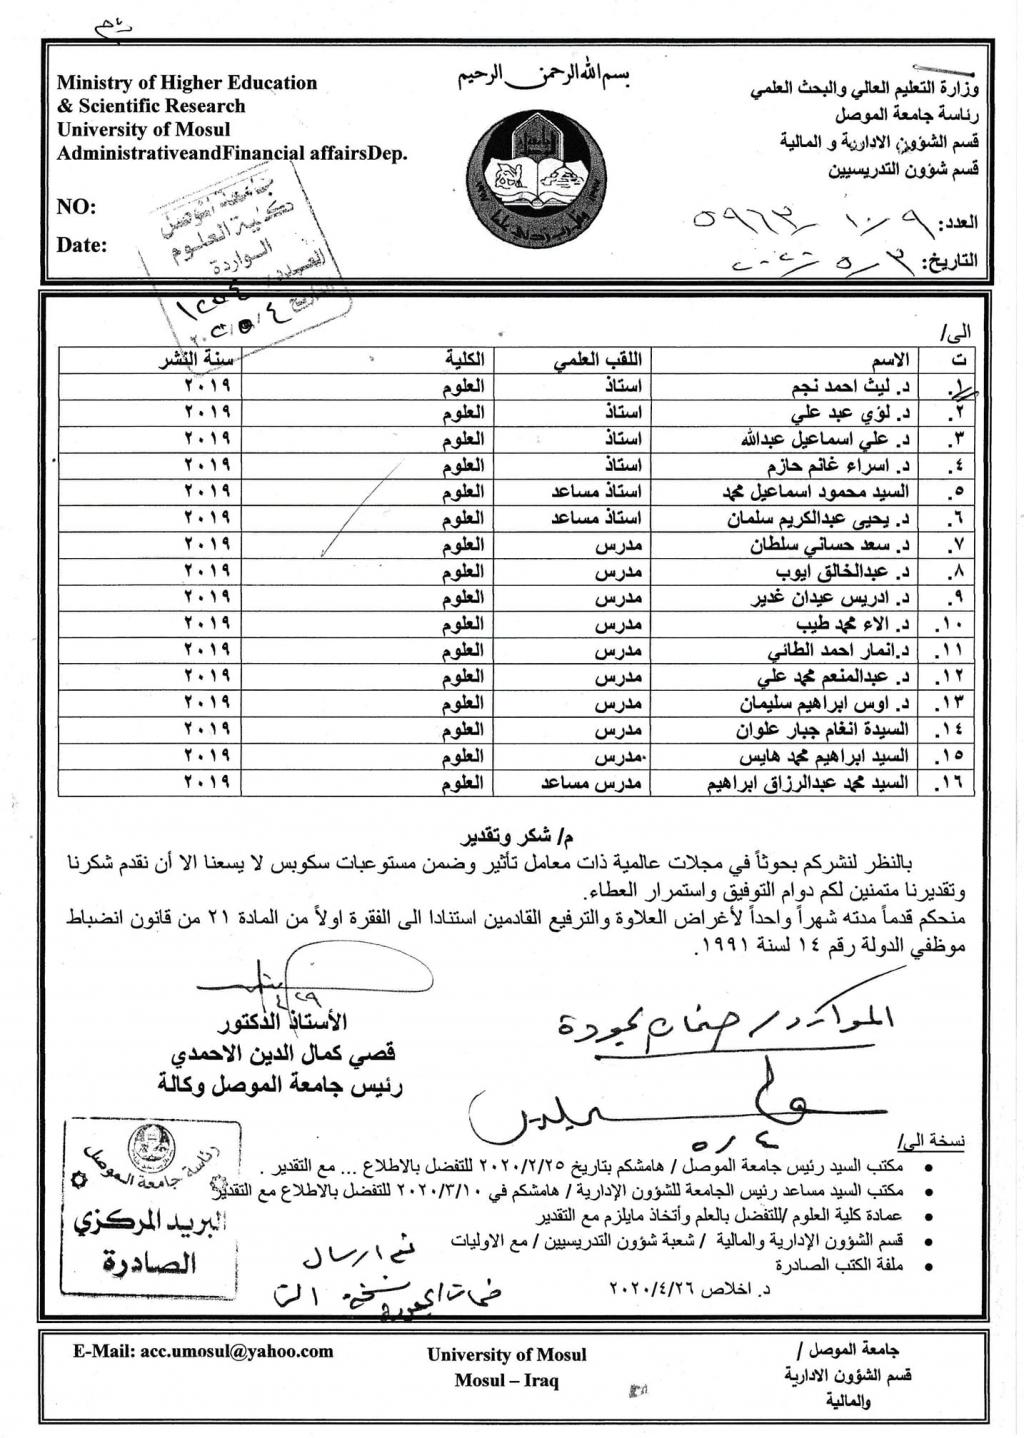 Ministry of Higher Education
& Scientific Research
University of Mosul
AdministrativeandFinancial affairsDep.
NO:
Date:
بسم الله الرحمن الرحيم
وزارة التعليم العالي والبحث العلمي
رئاسة جامعة الموصل
قسم الشؤون الادارية و المالية
قسم شؤون التدريسيين
العدد: ٩/١٠/٥٩٦٣
التاريخ: ٣/٥/٢٠٢٠
جامعة الموصل
كلية العلوم
الواردة
العدد/
التاريخ
الى/
ت الاسم اللقب العلمي الكلية سنة النشر
١. د. ليث احمد نجم استاذ العلوم ٢٠١٩
٢. د. لؤي عبد علي استاذ العلوم ٢٠١٩
٣. د. علي اسماعيل عبدالله استاذ العلوم ٢٠١٩
٤. د. اسراء غانم حازم استاذ العلوم ٢٠١٩
٥. السيد محمود اسماعيل محمد استاذ مساعد العلوم ٢٠١٩
٦. د. يحيى عبدالكريم سلمان استاذ مساعد العلوم ٢٠١٩
٧. د. سعد حساني سلطان مدرس العلوم ٢٠١٩
٨. د. عبدالخالق ايوب مدرس العلوم ٢٠١٩
٩. د. ادريس عيدان غدير مدرس العلوم ٢٠١٩
١٠. د. الاء محمد طيب مدرس العلوم ٢٠١٩
١١. د.انمار احمد الطائي مدرس العلوم ٢٠١٩
١٢. د. عبدالمنعم محمد علي مدرس العلوم ٢٠١٩
١٣. د. اوس ابراهيم سليمان مدرس العلوم ٢٠١٩
١٤. السيدة انغام جبار علوان مدرس العلوم ٢٠١٩
١٥. السيد ابراهيم محمد هايس مدرس العلوم ٢٠١٩
١٦. السيد محمد عبدالرزاق ابراهيم مدرس مساعد العلوم ٢٠١٩
م/ شكر وتقدير
بالنظر لنشركم بحوثاً في مجلات عالمية ذات معامل تأثير وضمن مستوعبات سكوبس لا يسعنا الا أن نقدم شكرنا
وتقديرنا متمنين لكم دوام التوفيق واستمرار العطاء.
منحكم قدماً مدته شهراً واحداً لأغراض العلاوة والترفيع القادمين استنادا الى الفقرة اولاً من المادة ٢١ من قانون انضباط
موظفي الدولة رقم ١٤ لسنة ١٩٩١.
٤/٢٩
الأستاذ الدكتور
قصي كمال الدين الاحمدي
رئيس جامعة الموصل وكالة
ضمان الجودة
٤/٥
نسخة الى/
• مكتب السيد رئيس جامعة الموصل / هامشكم بتاريخ ٢٠٢٠/٢/٢٥ للتفضل بالاطلاع ... مع التقدير .
• مكتب السيد مساعد رئيس الجامعة للشؤون الإدارية / هامشكم في ٢٠٢٠/٣/١٠ للتفضل بالاطلاع مع التقدير
• عمادة كلية العلوم /للتفضل بالعلم وأتخاذ مايلزم مع التقدير
• قسم الشؤون الإدارية والمالية / شعبة شؤون التدريسيين / مع الاوليات
• ملفة الكتب الصادرة
د. اخلاص ٢٠٢٠/٤/٢٦
رئاسة جامعة الموصل
البريد المركزي
الصادرة
E-Mail: acc.umosul@yahoo.com
University of Mosul
Mosul – Iraq
جامعة الموصل /
قسم الشؤون الادارية
والمالية